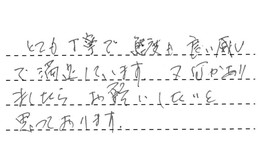 とても丁寧で 態度も良い感じ
で満足しています。又何かあり
ましたらお願いしたいと
思っております。